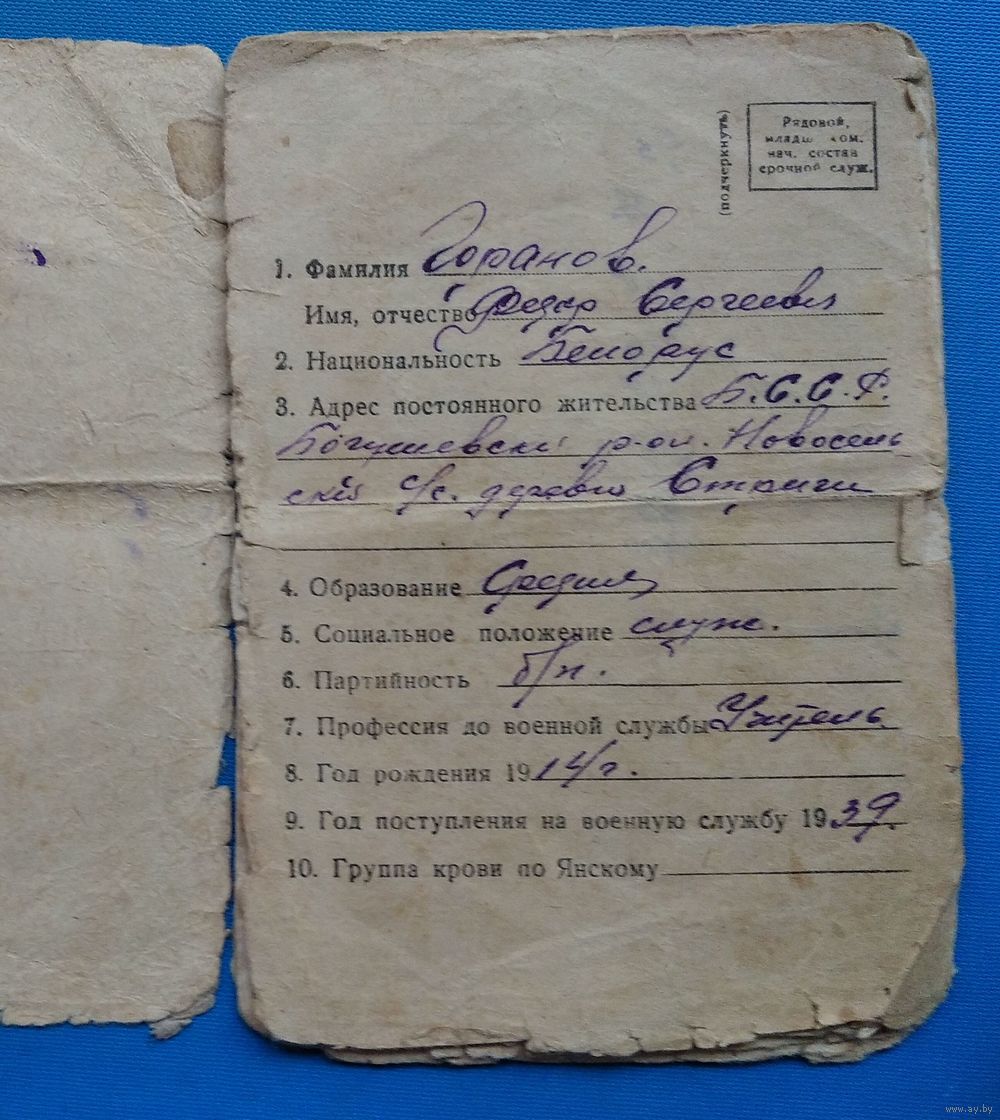 (подчеркнуть)
Рядовой,
младш. ком.
нач. состав
срочной служ.
1. Фамилия Горанов.
Имя, отчество Федор Сергеевич
2. Национальность Белорус
3. Адрес постоянного жительства Б.С.С.Р.
Богушевский р-он. Новосель
ский с/с. деревня Стриги
4. Образование Средния
5. Социальное положение служ.
6. Партийность б/п.
7. Профессия до военной службы Учитель.
8. Год рождения 1914/г.
9. Год поступления на военную службу 1939.
10. Группа крови по Янскому
www.ay.by